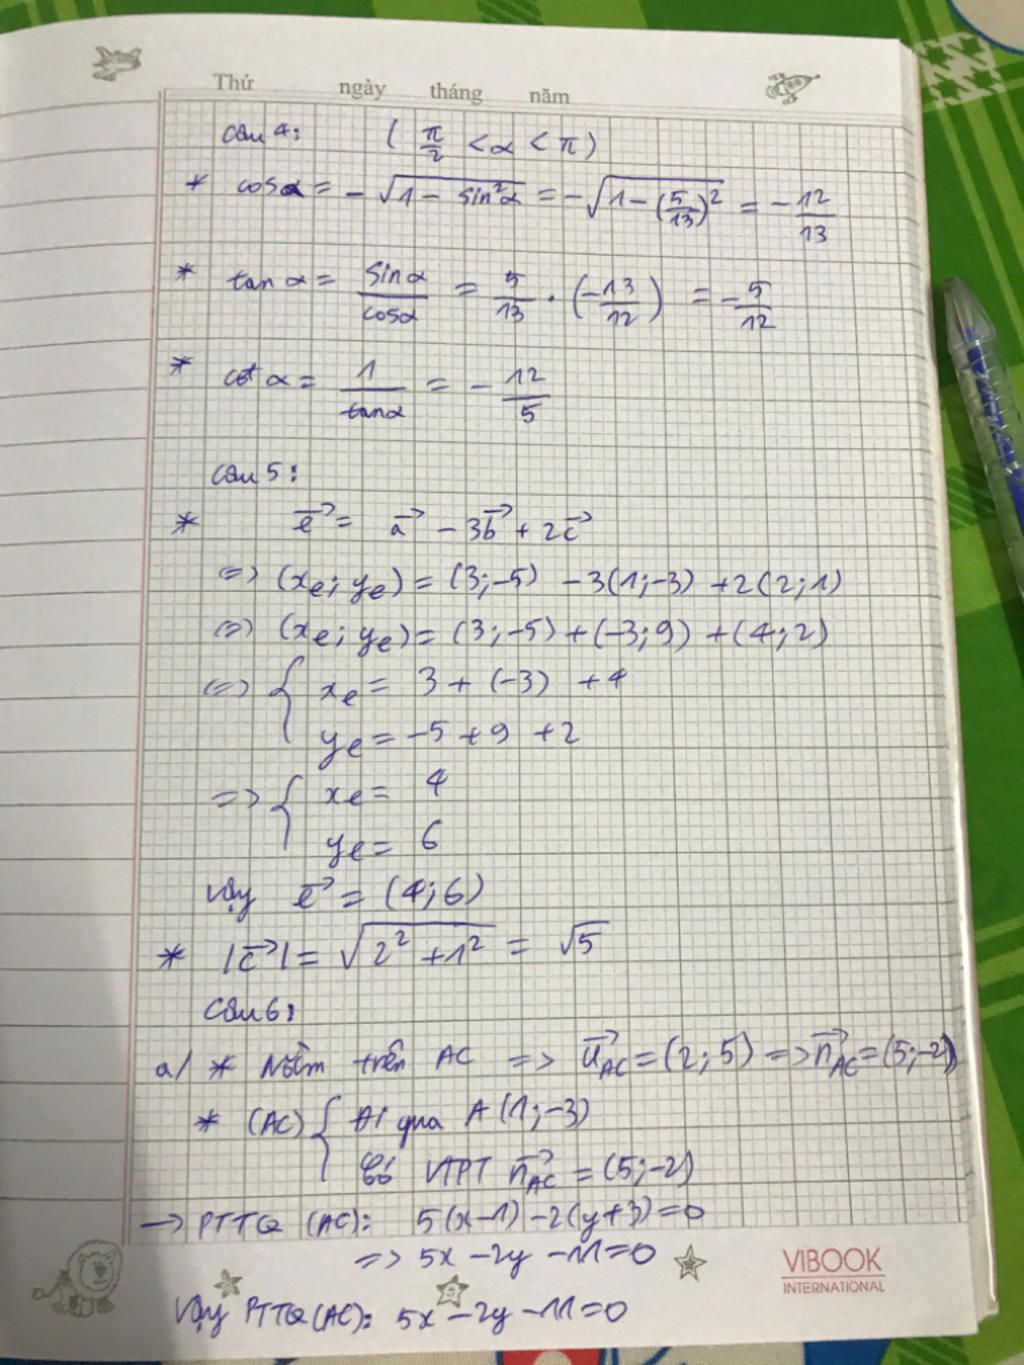 Thứ ngày tháng năm
Câu 4: ( π/2 < α < π )
* cosα = - √(1 - sin²α) = - √(1 - (5/13)²) = - 12/13
* tan α = sinα/cosα = 5/13 . (-13/12) = - 5/12
* cot α = 1/tanα = - 12/5
Câu 5:
* e⃗ = a⃗ - 3b⃗ + 2c⃗
=> (xe; ye) = (3;-5) - 3(1;-3) + 2(2;1)
<=> (xe; ye) = (3;-5) + (-3;9) + (4;2)
<=> { xe = 3 + (-3) + 4
ye = -5 + 9 + 2
=> { xe = 4
ye = 6
Vậy e⃗ = (4;6)
* |c⃗| = √(2² + 1²) = √5
Câu 6:
a/ * Nằm trên AC => u⃗AC = (2; 5) => n⃗AC = (5;-2)
* (AC) { Đi qua A (1;-3)
Có VTPT n⃗AC = (5;-2)
→ PTTQ (AC): 5(x-1) - 2(y+3) = 0
=> 5x - 2y - 11 = 0
Vậy PTTQ (AC): 5x - 2y - 11 = 0
VIBOOK
INTERNATIONAL